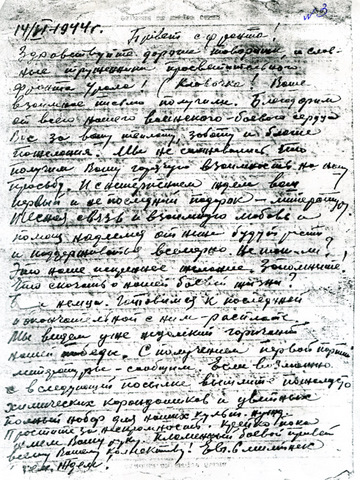 №3
14/VI-1944г.
Привет с фронта!
Здравствуйте дорогие товарищи и слав-
ные труженики просветительного
фронта Урала! Клавочка! Ваше
взаимное письмо получили. Благодарим
от всего нашего воинского-боевого сердца
Вас за вашу теплоту, заботу и благие
пожелания. Мы не сомневались что
получим Вашу горячую взаимность на нашу
просьбу. И с нетерпением ждем ваш
первый и не последний подарок - литературу.
Тесная связь и взаимную любовь и
помощь надеемся от нас будут расти
и поддерживаться всемерно
Это наше искреннее желание, запомните!
Что сказать о нашей боевой жизни?
Бьем немца. Готовимся к последней
окончательной с ним - расплате
Мы видим уже недалекий горизонт
нашей победы. С получением первой партии
литературы - сообщим. Если возможно
в следующей посылке вышлите
химических карандашов и цветных
полный набор для наших культ. нужд.
Простите за нескромность. Крепко пока
жмем Вашу руку. Пламенный боевой привет
всему Вашему коллективу!
Ждем.